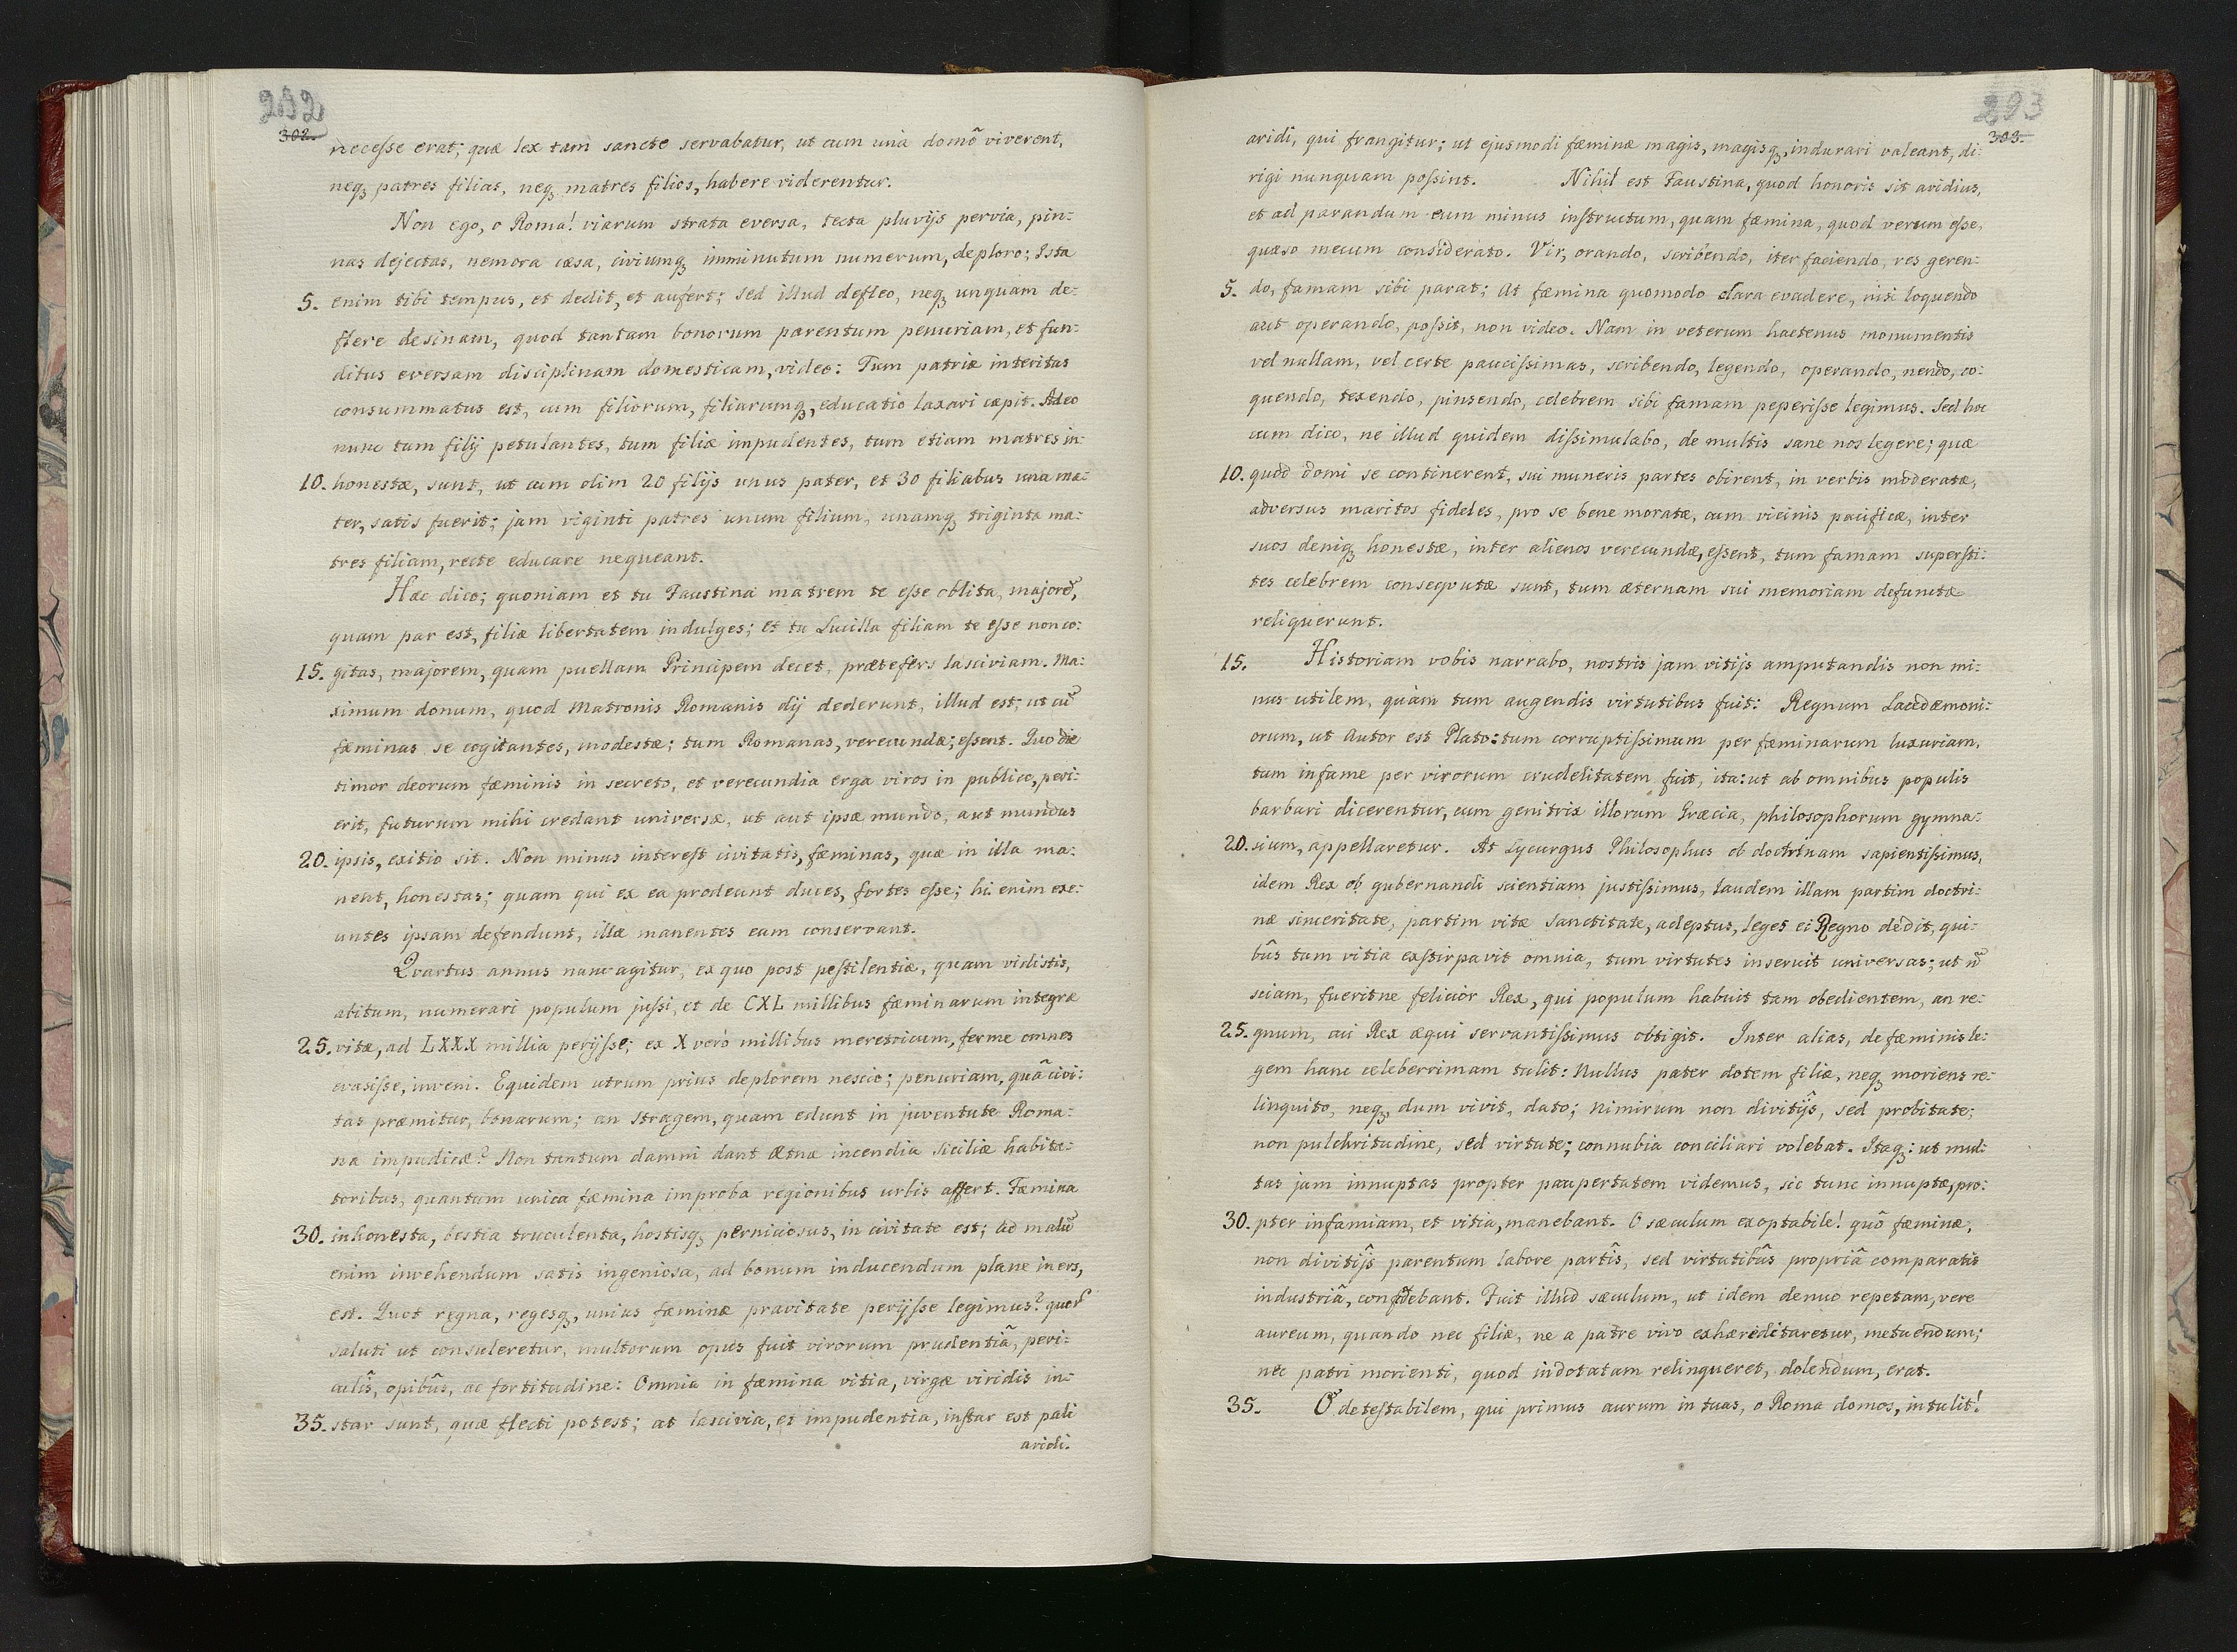 292
302.
necesse erat; quæ lex tam sancte servabatur, ut cum unà domô viverent,
neq₃ patres filias, neq₃ matres filios, habere viderentur.
Non ego, o Roma! viarum strata eversa, tecta pluvijs pervia, pin:
nas dejectas, nemora cæsa, civiumq₃ imminutum numerum, deploro; Ista
5. enim tibi tempus, et dedit, et aufert; sed illud defleo, neq₃ unquam de:
flere desinam, quod tantam bonorum parentum penuriam, et fun:
ditus eversam disciplinam domesticam, video: Tum patriæ interitus
consummatus est, cum filiorum, filiarumq₃, educatio laxari cæpit. Adeo
nunc tum filij petulantes, tum filiæ impudentes, tum etiam matres in:
10. honestæ, sunt, ut cum olim 20 filijs unus pater, et 30 filiabus una ma:
ter, satis fuerit; jam viginti patres unum filium, unamq₃ triginta ma:
tres filiam, recte educare nequeant.
Hæc dico; quoniam et tu Faustina matrem te esse oblita, majorē,
quam par est, filiæ libertatem indulges; et tu Lucilla filiam te esse non co:
15. gitas, majorem, quam puellam Principem decet, præ te fers lasciviam. Ma:
ximum donum, quod Matronis Romanis dij dederunt, illud est; ut cū
fæminas se cogitantes, modestæ; tum Romanas, verecundæ; essent. Quo die
timor deorum fæminis in secreto, et verecundia erga viros in publico, peri:
erit, futurum mihi credant universæ, ut aut ipsæ mundo, aut mundus
20. ipsis, exitio sit. Non minus interest civitatis, fæminas, quæ in illa ma:
nent, honestas; quam qui ex ea prodeunt duces, fortes esse; hi enim exe:
untes ipsam defendunt, illæ manentes eam conservant.
Qvartus annus nunc agitur, ex quo post pestilentiæ, quam vidistis,
abitum, numerari populum jussi, et de CXL millibus fæminarum integræ
25. vitæ, ad LXXX millia perijsse; ex X verò millibus meretricum, ferme omnes
evasisse, inveni. Equidem utrum prius deplorem nescio; penuriam, quâ civi:
tas præmitur, bonarum; an stragem, quam edunt in juventute Roma:
na impudicæ? Non tantum damni dant Ætnæ incendia Siciliæ habita:
toribus, quantum unica fæmina improba regionibus urbis affert. Fæmina
30. inhonesta, bestia truculenta, hostisq₃ perniciosus, in civitate est; ad malū
enim invehendum satis ingeniosa, ad bonum inducendum plane iners,
est. Quot regna, regesq₃, unius fæminæ pravitate perijsse legimus? quor̄
saluti ut consuleretur, multorum opus fuit virorum prudentiâ, peri:
culîs, opibûs, ac fortitudine: Omnia in fæmina vitia, virgæ viridis in:
35. star sunt, quæ flecti potest; at lascivia, et impudentia, instar est pali
aridi.
293
303.
aridi, qui frangitur; ut ejusmodi fæminæ magis, magisq₃, indurari valeant, di:
rigi nunquam possint. Nihil est Faustina, quod honoris sit avidius,
et ad parandum eum minus instructum, quam fæmina, quod verum esse,
quæso mecum considerato. Vir, orando, scribendo, iter faciendo, res geren:
5. do, famam sibi parat; At fæmina quomodo clara evadere, nisi loquendo
aut operando, possit, non video. Nam in veterum hactenus monumentis
vel nullam, vel certe paucissimas, scribendo, legendo, operando, nendo, co:
quendo, texendo, pinsendo, celebrem sibi famam peperisse legimus. Sed hoc
cum dico, ne illud quidem dissimulabo, de multis sane nos legere; quæ
10. quod domi se continerent, sui muneris partes obirent, in verbis moderatæ,
adversus maritos fideles, pro se bene moratæ, cum vicinis pacificæ, inter
suos deniq₃ honestæ, inter alienos verecundæ, essent, tum famam supersti:
tes celebrem conseqvutæ sunt, tum æternam sui memoriam defunctæ
reliquerunt.
15. Historiam vobis narrabo, nostris jam vitijs amputandis non mi:
nus utilem, quàm tum augendis virtutibus fuit: Regnum Lacedæmoni:
orum, ut Autor est Plato: tum corruptissimum per fæminarum luxuriam,
tum infame per virorum crudelitatem fuit, ita: ut ab omnibus populis
barbari dicerentur, cum genitrix illorum Græcia, philosophorum gymna:
20. sium, appellaretur. At Lycurgus Philosophus ob doctrinam sapientissimus,
idem Rex ob gubernandi scientiam justissimus, laudem illam partim doctri:
næ sinceritate, partim vitæ sanctitate, adeptus, leges ei Regno dedit, qui:
bûs tum vitia exstirpavit omnia, tum virtutes inseruit universas; ut ñ
sciam, fueritne felicior Rex, qui populum habuit tam obedientem, an re:
25. gnum, cui Rex æqui servantissimus obtigit. Inter alias, de fæminis le:
gem hanc celeberrimam tulit: Nullus pater dotem filiæ, neq₃ moriens re:
linquito, neq₃, dum vivit, dato; Nimirum non divitijs, sed probitate;
non pulchritudine, sed virtute; connubia conciliari volebat. Itaq₃: ut mul:
tas jam innuptas propter paupertatem videmus, sic tunc innuptæ, pro:
30. pter infamiam, et vitia, manebant. O sæculum exoptabile! quô fæminæ,
non divitijs parentum labore partîs, sed virtutibûs propriâ comparatis
industriâ, confidebant. Fuit illud sæculum, ut idem denuo repetam, vere
aureum, quando nec filiæ, ne a patre vivo exhæreditaretur, metuendum;
nec patri morienti, quod indotatam relinqueret, dolendum, erat.
35. O detestabilem, qui primus aurum in tuas, o Roma domos, intulit!